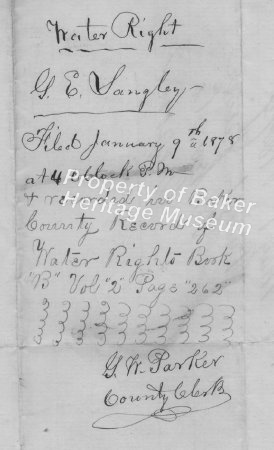 Water Right
G. E. Langley
Filed January 9th 1878
at 4 Oclock P.M
& recorded in Baker
County Record of
Water Rights Book
"B" Vol "2" Page "262"
G W Parker
County Clerk
Property of Baker
Heritage Museum